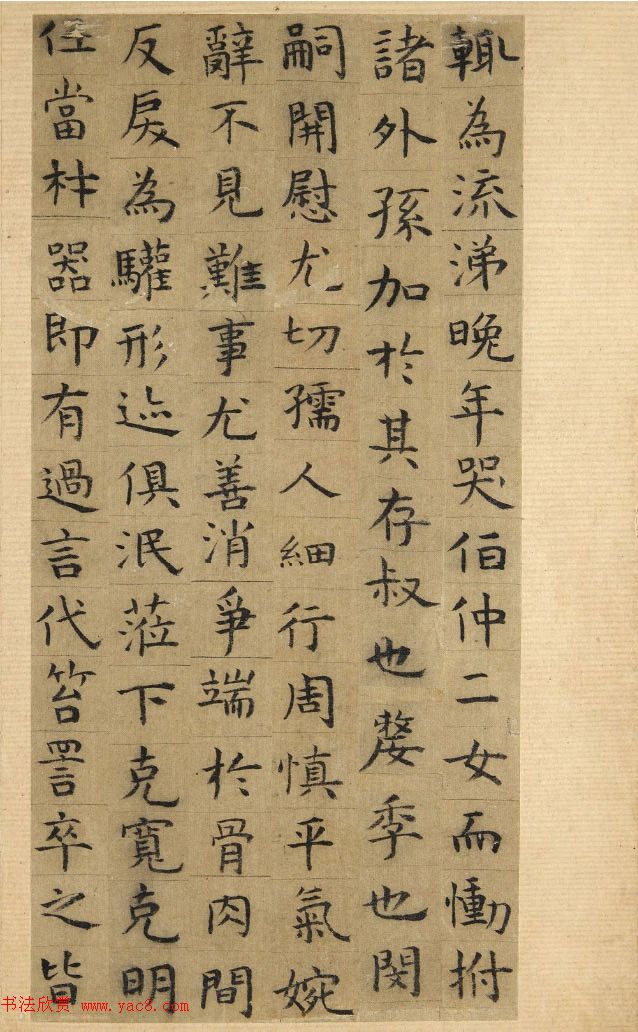 輒為流涕晚年哭伯仲二女而慟拊
諸外孫加於其存叔也嫠季也閔
嗣開慰尤切孺人細行周慎平氣婉
辭不見難事尤善消爭端於骨肉間
反戾為驩形迹俱泯蒞下克寬克明
任當材器即有過言代笞詈卒之皆
书法欣赏 www.yac8.com